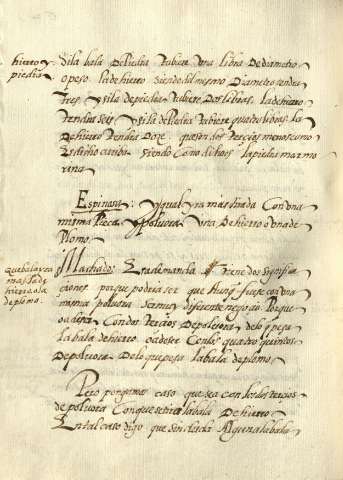 hierro y
piedra
Si la bala de Piedra tubiere una libra de diametro
o peso la de hierro siendo del mismo Diametro tendra
tres y si la de piedra tubiere dos libras la de hierro
tendra seis y si la de Piedra tubiere quatro libras la
de hierro tendra doze que son dos tercios menos como
es dicho arriba siendo como digo la piedra mar mo
rina
Espinosa: y qual yra mas tirada con una
misma Pieça y polvora una de hierro o una de
Plomo
que bala yra
mas la de
hierro o la
de plomo.
Machado: Esta demanda tiene dos significa
ciones porque podria ser que fuese con una
misma polvora y es muy diferente negocio Porque
o a de ser con dos tercios de polvora de lo que pesa
la bala de hierro o a de ser con los quatro quintos
de polvora de lo que pesa la bala de plomo
Pero pongamos caso que sea con los dos tercios
de polvora con que se tira la bala de hierro
En tal caso digo que sin duda alguna la bala